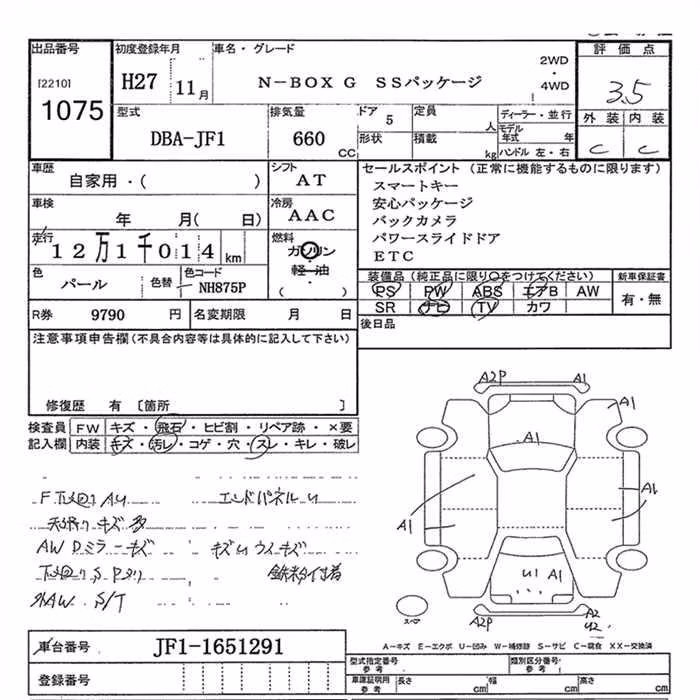 出品番号 初度登録年月 車名・グレード 評価点
[2210] H27 11月 N-BOX G SSパッケージ 2WD・4WD 3.5
1075 型式 排気量 ドア 定員 ディーラー・並行 外装 内装
DBA-JF1 660 CC 5 人 モデル年式 年 C C
形状 積載 kg ハンドル 左・右
車歴 シフト セールスポイント (正常に機能するものに限ります)
自家用・( ) AT スマートキー
車検 冷房 安心パッケージ
年 月( 日) AAC バックカメラ
走行 燃料 パワースライドドア
12万1千014 km ガソリン ETC
軽・油
( )
色 色替 色コード 装備品 (純正品に限り○をつけてください) 新車保証書
パール NH875P PS PW ABS エアB AW 有・無
R券 9790 円 名変期限 月 日 SR ナビ TV カワ
注意事項申告欄(不具合内容等は具体的に記入して下さい) 後日品
修復歴 有 〔箇所 〕
検査員 FW キズ・飛石・ヒビ割・リペア跡・×要
記入欄 内装 キズ・汚レ・コゲ・穴・スレ・キレ・破レ
A2P A1
A1
A1
A1
A1
U1 A1
スペア A2P A2
U2
F下回りAU エンドパネルU
天張りキズ多
AW Dミラーキズ キズUウィキズ
下回りS Pサリ
社外AW. S/T
車台番号 JF1-1651291
A-キズ E-エクボ U-凹み W-補修跡 S-サビ C-腐食 XX-交換済
登録番号
型式指定番号 参考 類別区分番号 参考
車庫証明用 参考 長さ cm 幅 cm 高さ cm